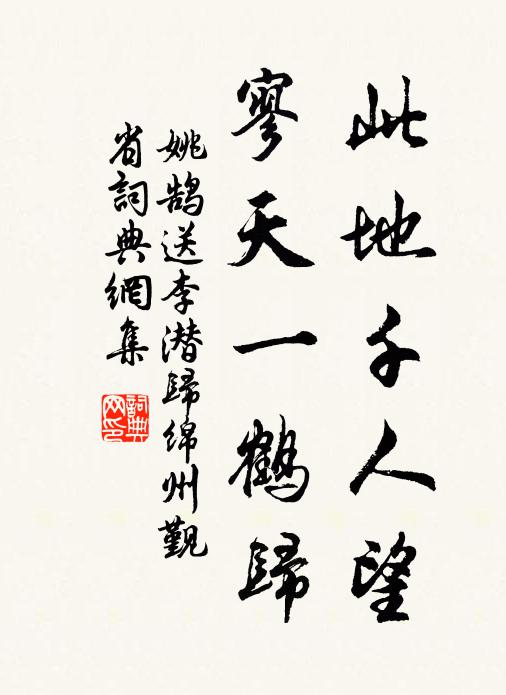 此地千人望
寥天一鶴歸
姚鹄送李潜歸绵州觐
省詞典網集
詞典
网印